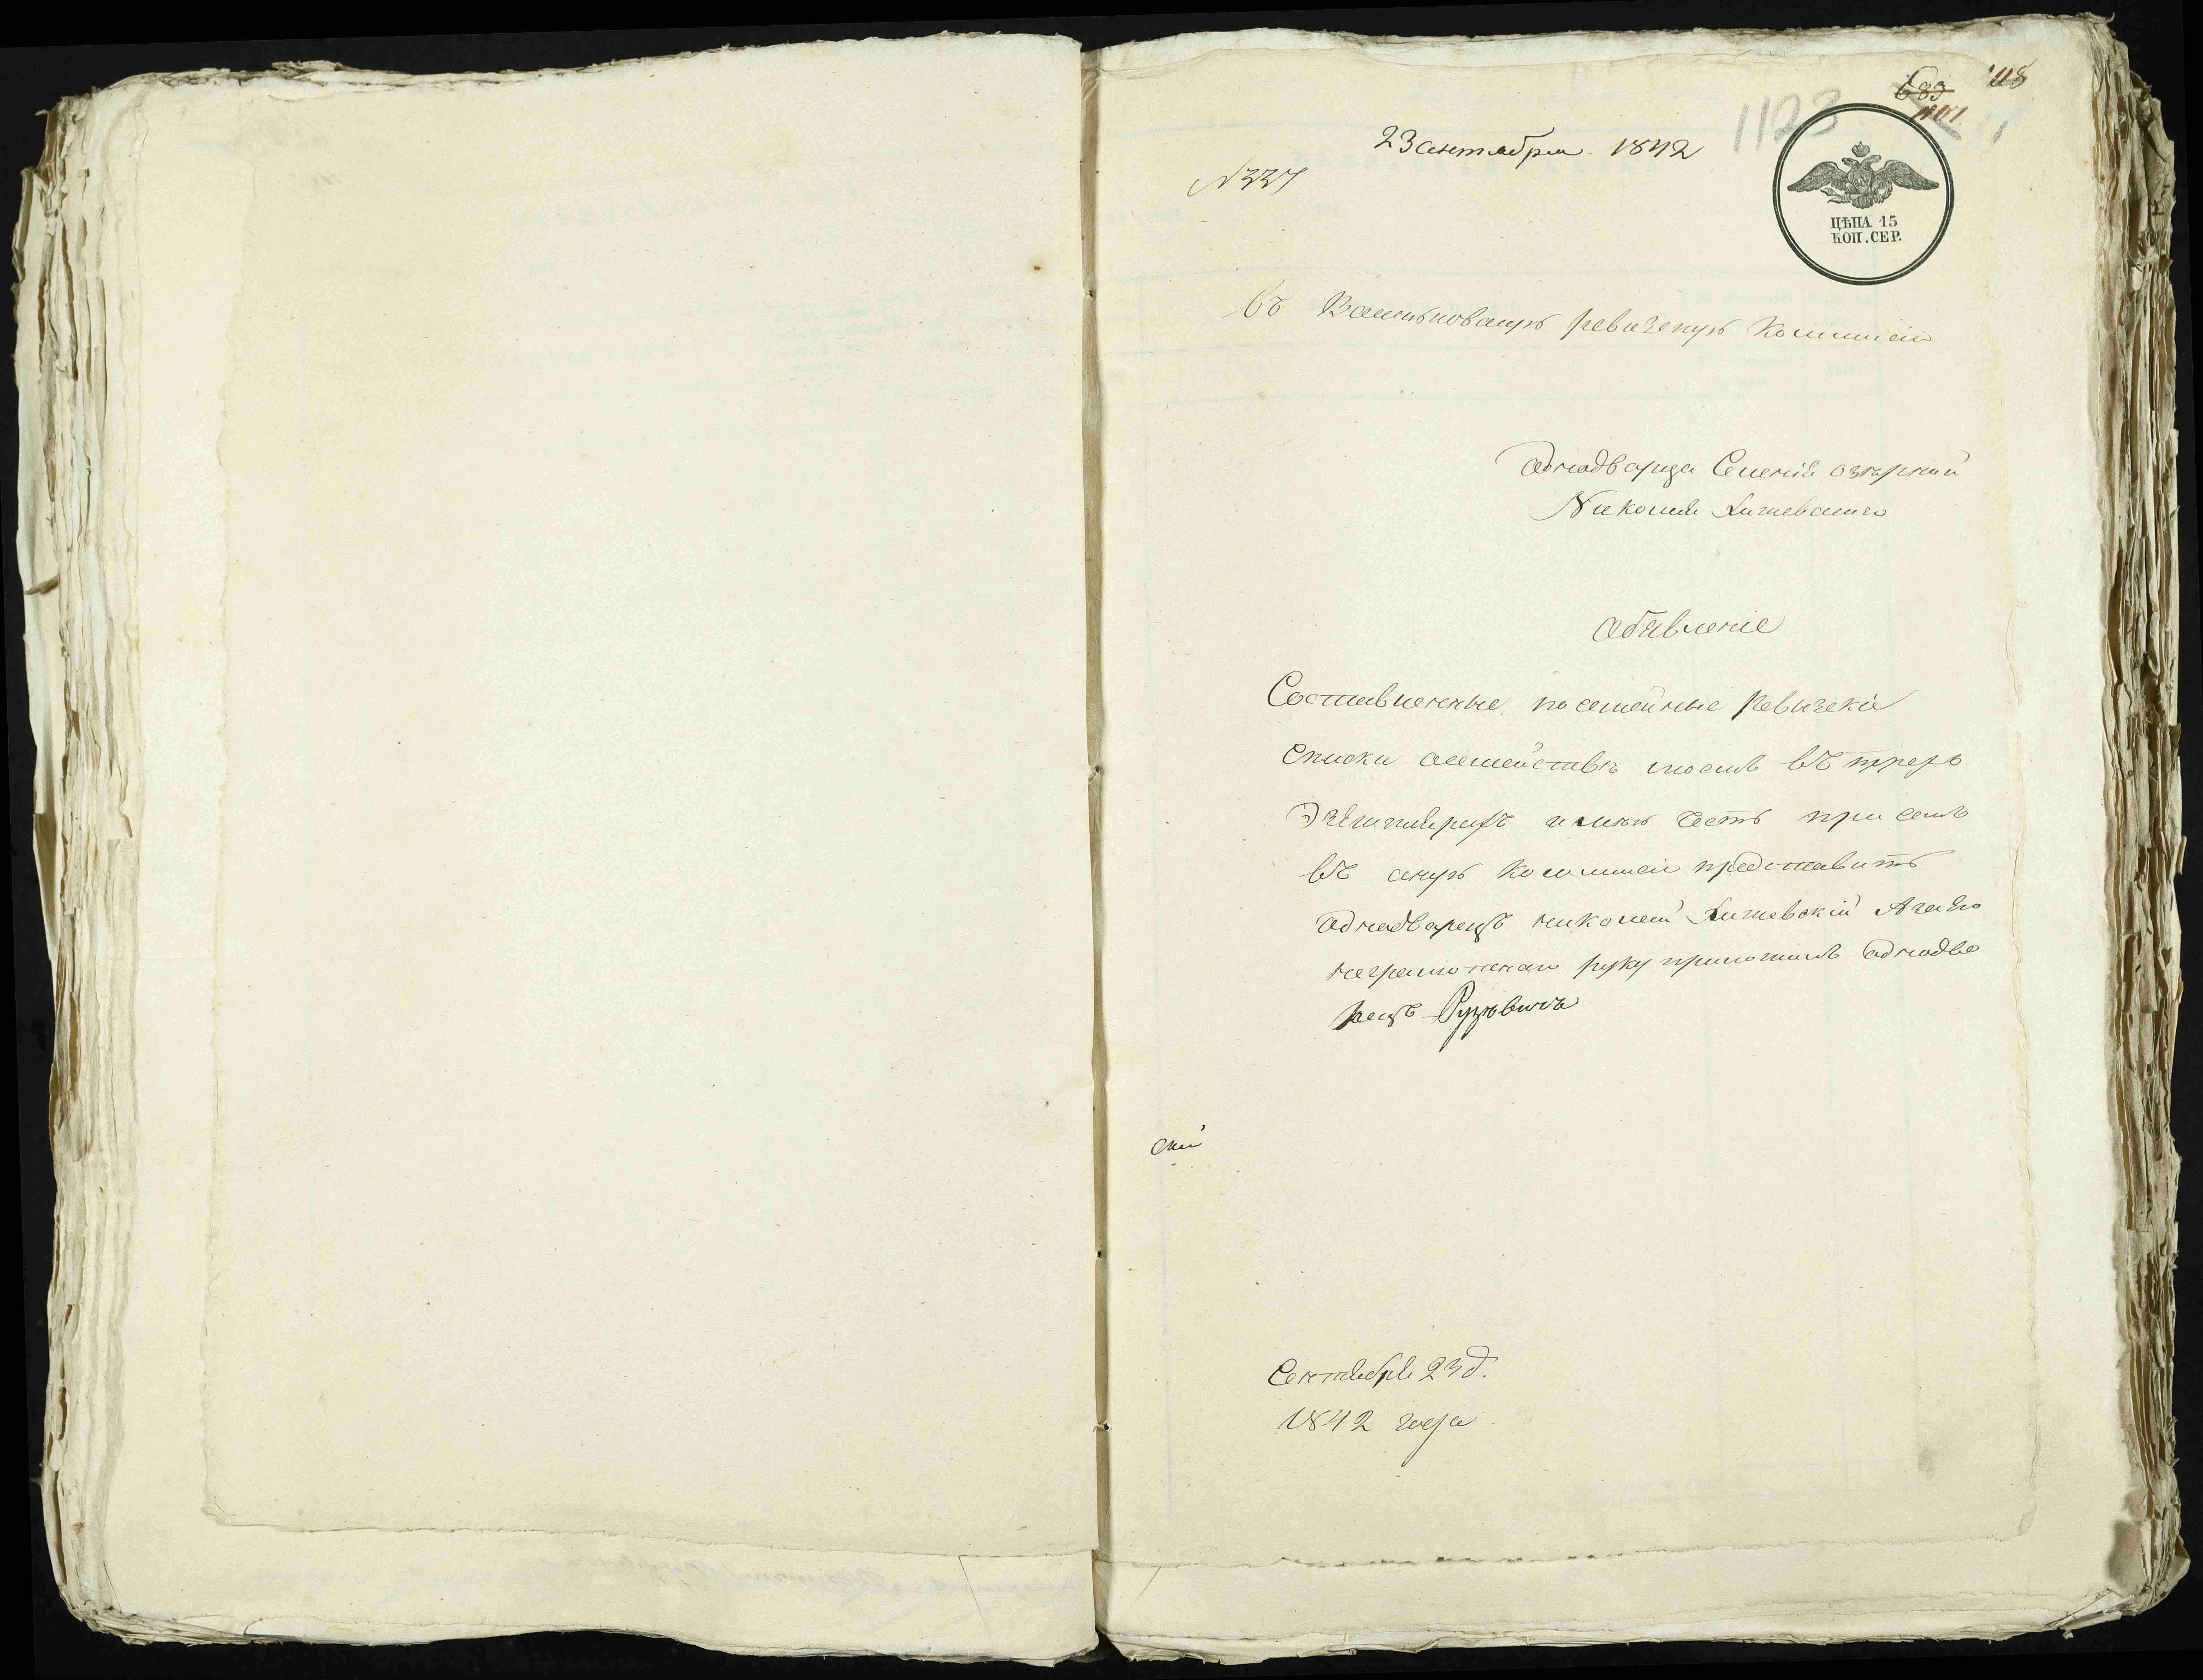 683
1123
23 сентября 1842
N 337
ЦѢНА 15
КОП. СЕР.
въ ревизкую Коммисію
Однодворца Селенія озерной
Николая Лижевскаго
Обявленіе
Составленные посемейные Ревизскіе
Списки семейства моего въ трехъ
Экземплярахъ имею честь при семъ
въ оную Коммисію представить
Однодворецъ николай Лижевскій А за его
неграмотнаго руку приложилъ однодво
рецъ
Сентября 23 д.
1842 года